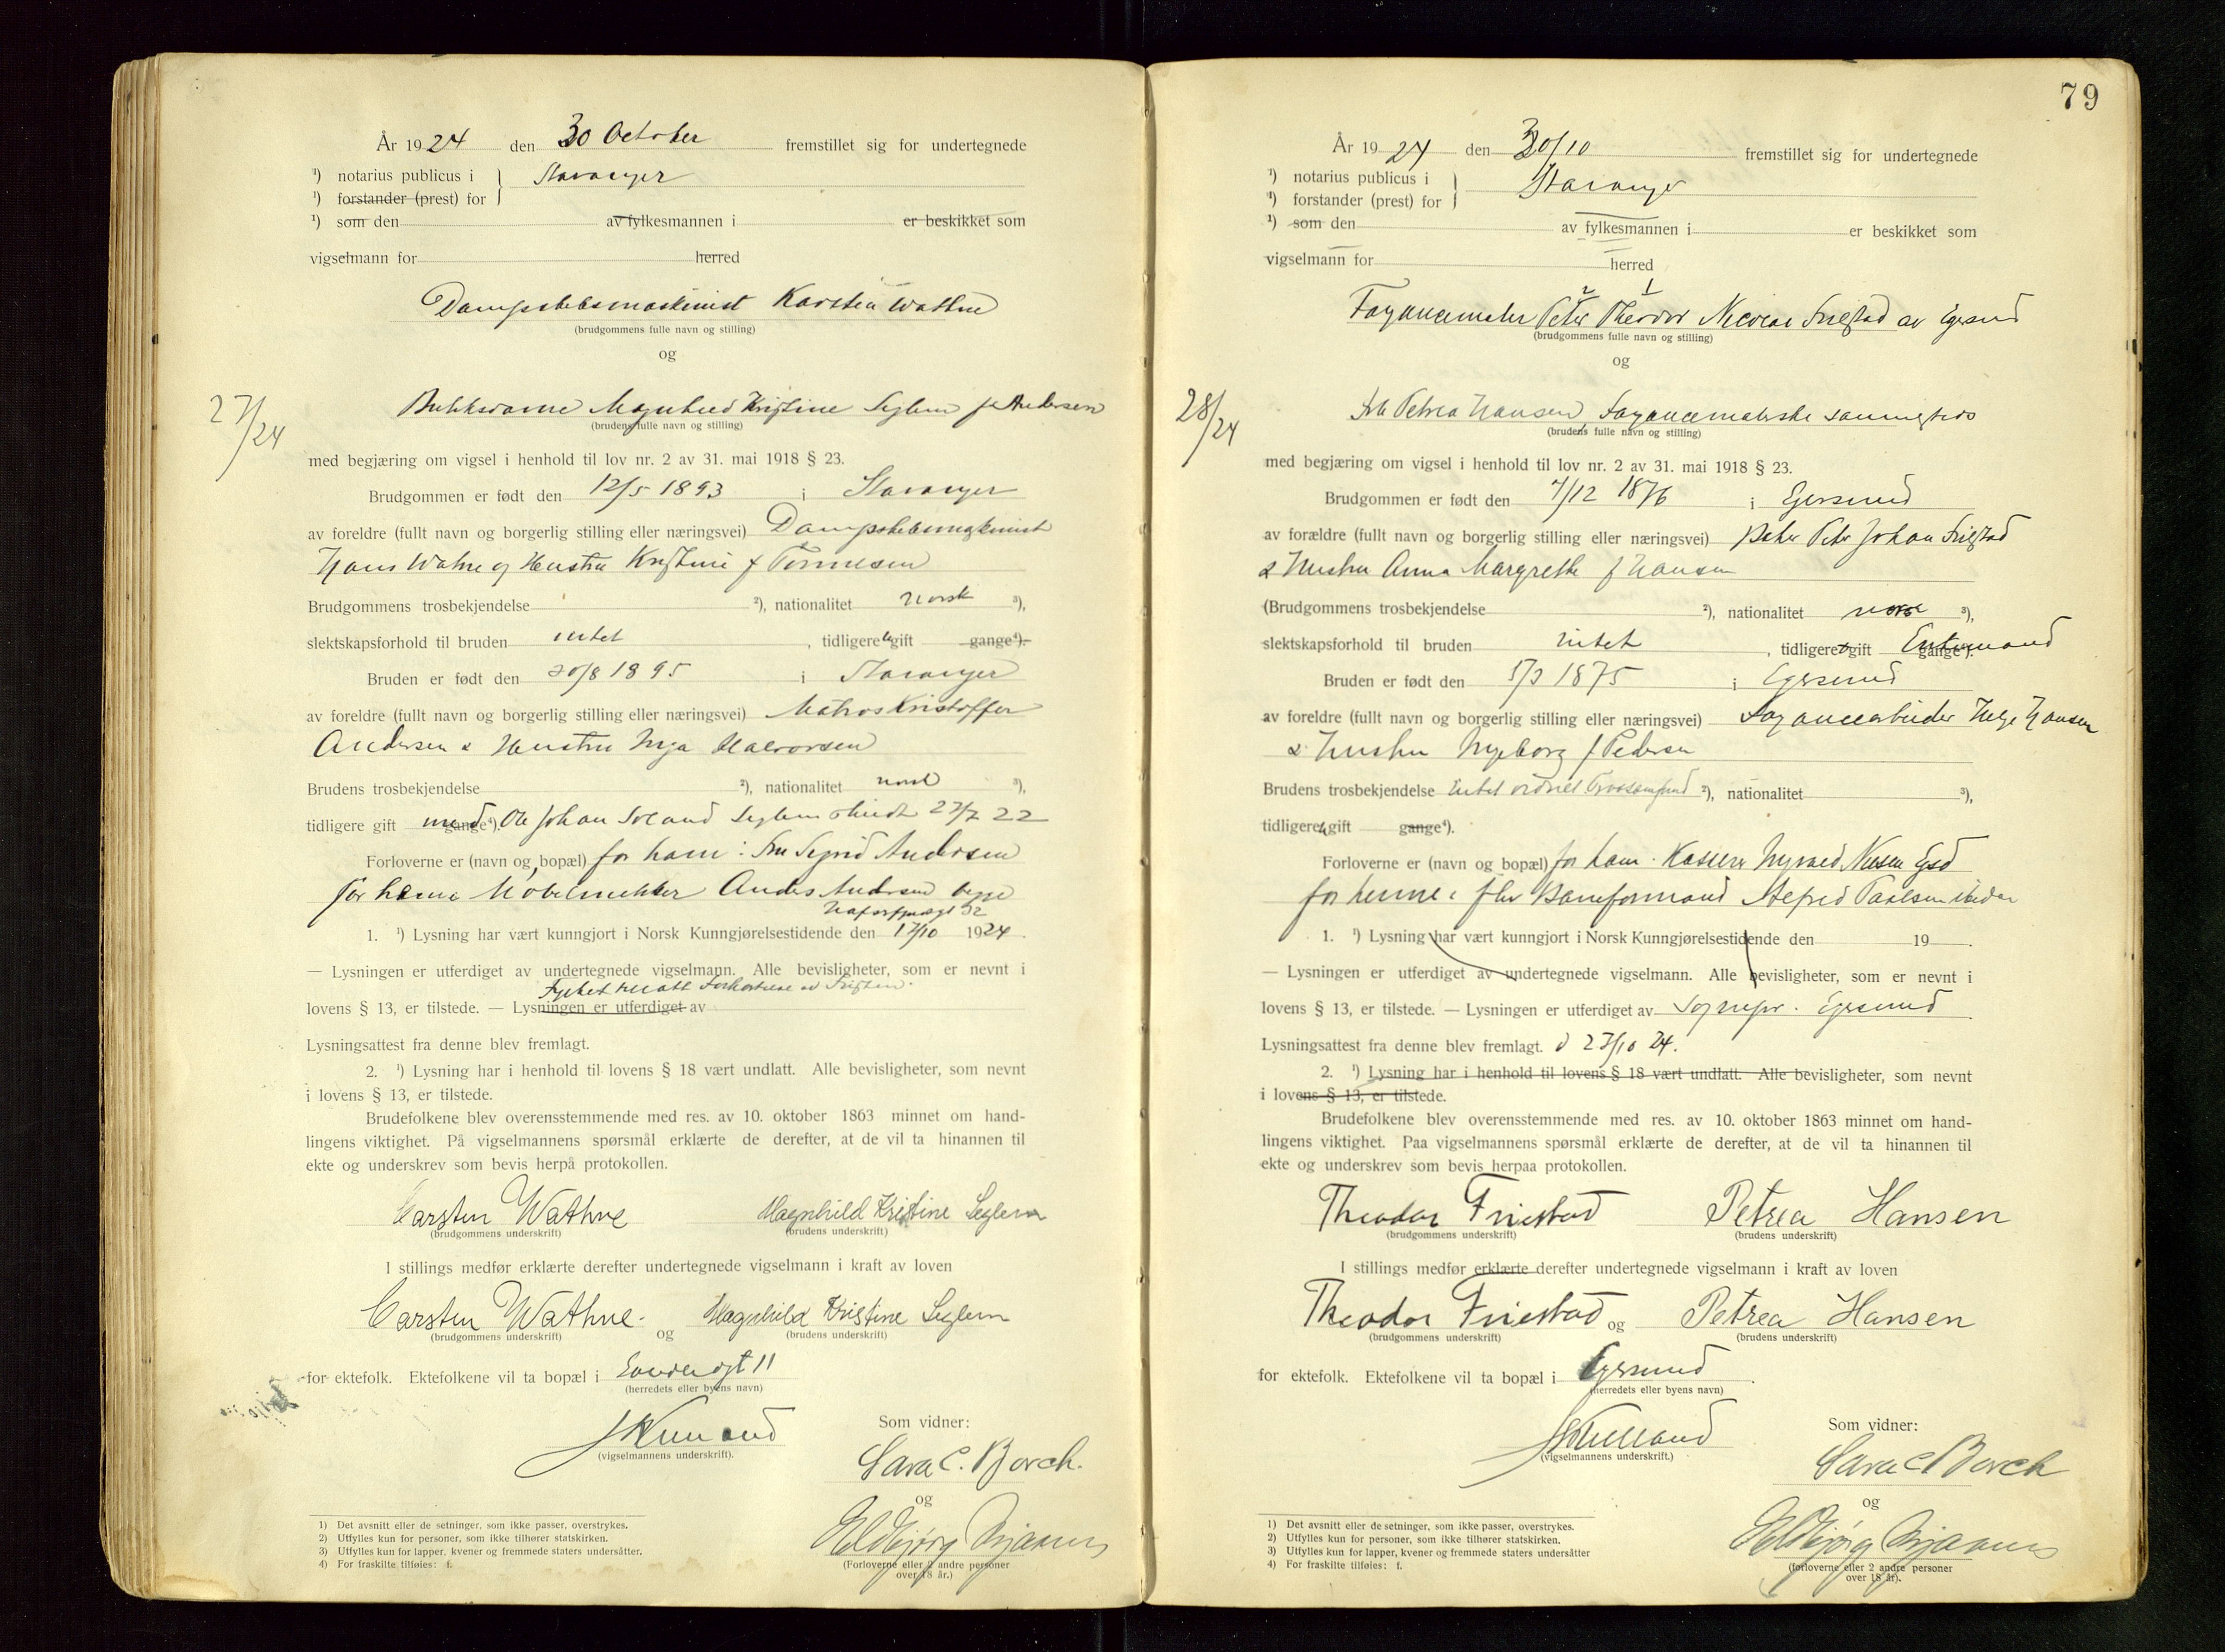 År 1924 den 30 October fremstillet sig for undertegnede
¹) notarius publicus i Stavanger
¹) forstander (prest) for
¹) som den av fylkesmannen i er beskikket som
vigselmann for herred
Dampskibsmaskinist Karsten Wathne
(brudgommens fulle navn og stilling)
og
27/24
Butiksdame Magnhild Kristine Seglem f Andersen
(brudens fulle navn og stilling)
med begjæring om vigsel i henhold til lov nr. 2 av 31. mai 1918 § 23.
Brudgommen er født den 12/5 1893 i Stavanger
av foreldre (fullt navn og borgerlig stilling eller næringsvei) Dampskibsmaskinist
Hans Wathne og Hustru Kristine f Tønnesen
Brudgommens trosbekjendelse ²), nationalitet norsk ³),
slektskapsforhold til bruden intet, tidligere gift gange⁴).
Bruden er født den 20/8 1895 i Stavanger
av foreldre (fullt navn og borgerlig stilling eller næringsvei) Matros Kristoffer
Andersen & Hustru Inga Halvorsen
Brudens trosbekjendelse ²), nationalitet norsk ³),
tidligere gift med gange⁴). Ole Johan Seglem 27/7 22
Forloverne er (navn og bopæl) for ham: Fru Sigrid Andersen
for henne Møbelsnekker Anders Andersen begge
1. ¹) Lysning har vært kunngjort i Norsk Kunngjørelsestidende den 17/10 1924.
— Lysningen er utferdiget av undertegnede vigselmann. Alle bevisligheter, som er nevnt i
lovens § 13, er tilstede. — Lysningen er utferdiget av
Lysningsattest fra denne blev fremlagt.
2. ¹) Lysning har i henhold til lovens § 18 vært undlatt. Alle bevisligheter, som nevnt
i lovens § 13, er tilstede.
Brudefolkene blev overensstemmende med res. av 10. oktober 1863 minnet om hand-
lingens viktighet. På vigselmannens spørsmål erklærte de derefter, at de vil ta hinannen til
ekte og underskrev som bevis herpå protokollen.
Carsten Wathne Magnhild Kristine Seglem
(brudgommens underskrift) (brudens underskrift)
I stillings medfør erklærte derefter undertegnede vigselmann i kraft av loven
Carsten Wathne. og Magnhild Kristine Seglem
(brudgommens underskrift) (brudens underskrift)
for ektefolk. Ektefolkene vil ta bopæl i 11
(herredets eller byens navn)
(vigselmannens underskrift).
Som vidner:
Sara C. Borch.
og
Eldbjørg
(Forloverne eller 2 andre personer
over 18 år.)
1) Det avsnitt eller de setninger, som ikke passer, overstrykes.
2) Utfylles kun for personer, som ikke tilhører statskirken.
3) Utfylles kun for lapper, kvener og fremmede staters undersåtter.
4) For fraskilte tilføies: f.
79
År 1924 den 30/10 fremstillet sig for undertegnede
¹) notarius publicus i Stavanger
¹) forstander (prest) for
¹) som den av fylkesmannen i er beskikket som
vigselmann for herred
Fayancemaler Peter Theodor Nicolai Friestad av Egersund
(brudgommens fulle navn og stilling)
og
28/24
Petrea Hansen, Fayancemalerske sammesteds
(brudens fulle navn og stilling)
med begjæring om vigsel i henhold til lov nr. 2 av 31. mai 1918 § 23.
Brudgommen er født den 7/12 1876 i Egersund
av forældre (fullt navn og borgerlig stilling eller næringsvei) Peter Johan Friestad
& Hustru Anna Margrethe f Hansen
(Brudgommens trosbekjendelse ²), nationalitet norsk ³),
slektskapsforhold til bruden intet, tidligere gift Enkemand gange⁴).
Bruden er født den 5/3 1875 i Egersund
av foreldre (fullt navn og borgerlig stilling eller næringsvei) Fayancearbeider Helge Hansen
& Hustru Ingeborg f Pedersen
Brudens trosbekjendelse intet ordnet Trossamfund ²), nationalitet ³),
tidligere gift gange⁴).
Forloverne er (navn og bopæl) for ham. Kasserer Ingvald Nilsen Egsd
for henne: Alfred Paulsen
1. ¹) Lysning har vært kunngjort i Norsk Kunngjørelsestidende den 19 .
— Lysningen er utferdiget av undertegnede vigselmann. Alle bevisligheter, som er nevnt i
lovens § 13, er tilstede. — Lysningen er utferdiget av Sognepr. Egersund
Lysningsattest fra denne blev fremlagt. d 27/10 24.
2. ¹) Lysning har i henhold til lovens § 18 vært undlatt. Alle bevisligheter, som nevnt
i lovens § 13, er tilstede.
Brudefolkene blev overensstemmende med res. av 10. oktober 1863 minnet om hand-
lingens viktighet. Paa vigselmannens spørsmål erklærte de derefter, at de vil ta hinannen til
ekte og underskrev som bevis herpaa protokollen.
Theodor Friestad Petrea Hansen
(brudgommens underskrift) (brudens underskrift)
I stillings medfør erklærte derefter undertegnede vigselmann i kraft av loven
Theodor Friestad og Petrea Hansen
(brudgommens underskrift) (brudens underskrift)
for ektefolk. Ektefolkene vil ta bopæl i Egersund.
(herredets eller byens navn)
(vigselmannens underskrift.)
Som vidner:
Sara C Borch
og
Eldbjørg
(forloverne eller 2 andre personer
over 18 år).
1) Det avsnitt eller de setninger, som ikke passer, overstrykes.
2) Utfylles kun for personer, som ikke tilhører statskirken.
3) Utfylles kun for lapper, kvener og fremmede staters undersåtter
4) For fraskilte tilføies: f.